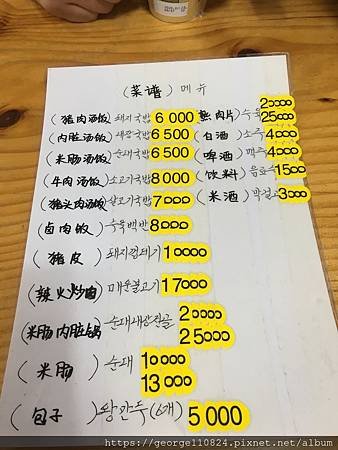 (菜谱) 메뉴
(猪肉汤饭) 돼지국밥 6000
(内脏汤饭) 내장국밥 6500
(米肠汤饭) 순대국밥 6500
(牛肉汤饭) 소고기국밥 8000
(猪头肉汤饭) 7000
(卤肉饭) 수육백반 8000
(猪皮) 돼지껍데기 10000
(辣火炒肉) 매운불고기 17000
(米肠内脏锅) 순대내장전골 20000
25000
(米肠) 순대 10000
13000
(包子) 왕만두(6개) 5000
(熟肉片) 수육 20000
25000
(白酒) 소주 4000
(啤酒) 맥주 4000
(饮料) 음료수 1500
(米酒) 막걸리 3000
https://george110824.pixnet.net/album